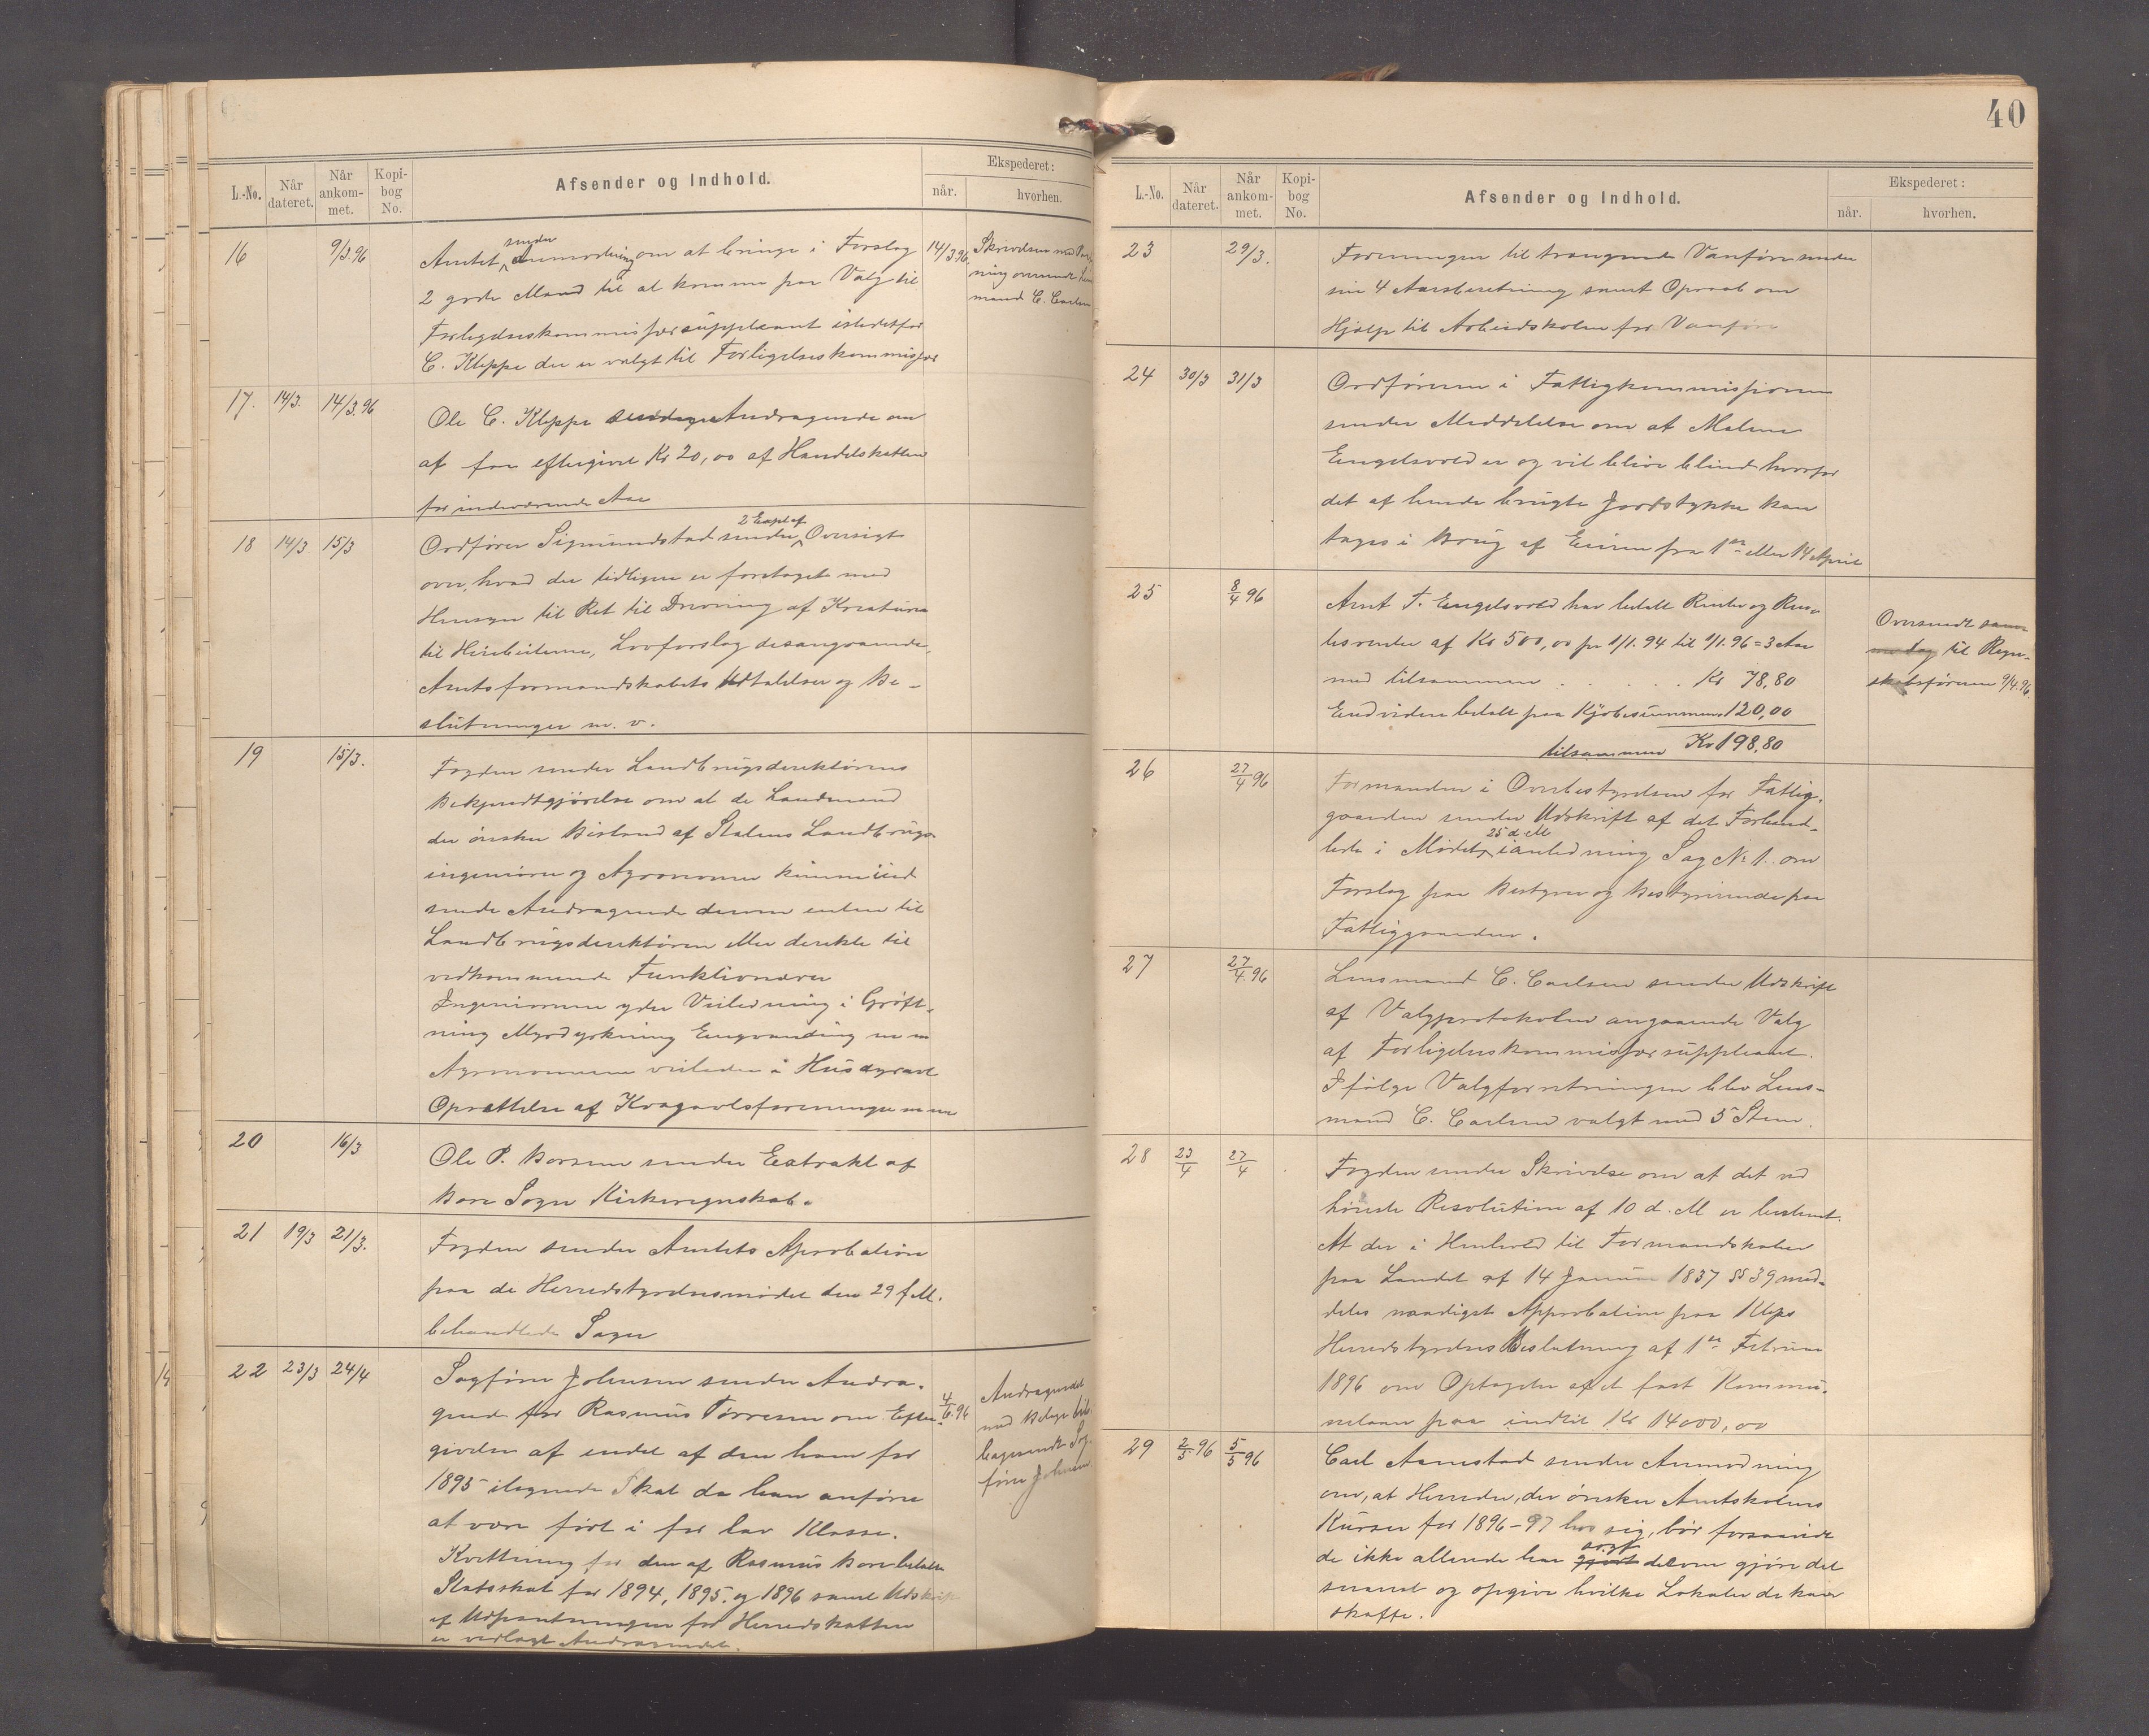 L.-No. Når dateret. Når ankom-met. Kopi-bog No. Afsender og Indhold. Ekspederet: når. hvorhen.
16 9/3.96 Amtet sender Anmodning om at bringe i Forslag 14/3.96 Skrivelsen med
2 gode Mænd til at komme paa Valg til
mand C. Carlsen
Forligelseskommissærsuppleant istedetfor
C. Kleppe der er valgt til Forligelseskommissær
17. 14/3. 14/3.96 Ole C. Kleppe Andragende om
at faa eftergivet Kr 20,00 af Handelskatten
for indeværende Aar
18 14/3 15/3 Ordfører Sigmundstad sender 2 Expl af Oversigt
over, hvad der tidligere er foretaget med
Hensyn til Ret til Drivning af Kreature
til Heibeiterne, Lovforslag desangaaende,
Amtsformandskabets Udtalelser og Be-
slutninger m. v.
19 15/3. Fogden sender Landbrugsdirektørens
Bekjendtgjørelse om at de Landmænd
der ønsker Bistand af Statens Landbrugs
ingeniører og Agronomer kunne ind
sende Andragende derom enten til
Landbrugsdirektøren eller direkte til
vedkommende Funktionærer
Ingeniørerne yder Veiledning i Grøft-
ning Myrdyrkning Engvanding m m
Agronomerne veileder i Husdyravl
Oprettelse af Kvægavlsforeninger m m
20 16/3 Ole P. Borsen sender Extrakt af
Bore Sogns Kirkeregnskab.
21 19/3 21/3. Fogden sender Amtets Aprobation
paa de Herredstyrelsesmødet den 29 f. M.
behandlede Sager
22 23/3 24/4 Sagfører Johnsen sender Andra-
Andragendet
gende for Rasmus Tørresen om Efter- 4/6.96
med Bilage til-
givelse af endel af den ham for
bagesendt Sag-
1895 ilignede Skat da han anføres
fører Johnsen
at være ført i for lav Klasse.
Kvittering for den af Rasmus Bore betalte
Statsskat for 1894, 1895. og 1896 samt Udskrift
af Udpantningen for Herredskatten
er vedlagt Andragendet.
40
L.-No. Når dateret. Når ankom-met. Kopi-bog No. Afsender og Indhold. Ekspederet: når. hvorhen.
23 29/3. Foreningen til trængende Vanføre sender
sin 4 Aarsberetning samt Opraab om
Hjælp til Arbeidskolen for Vanføre
24 30/3 31/3 Ordføreren i Fattigkommissionen
sender Meddelelse om at Malene
Engelsvold er og vil blive blind hvorfor
det af hende brugte Jordstykke kan
tages i Brug af Eieren fra 1ste eller 14 April
25 8/4 96 Arnt T. Engelsvold har betalt Renter og Ren-
Oversendt sam-
tesrenter af Kr 500,00 fra 1/1.94 til 1/1.96 = 3 Aar
me dag til Regn-
med tilsammen . . . . . Kr 78,80
skabsføreren 9/4.96
Endvidere betalt paa Kjøbesummen 120,00
tilsammen Kr 198,80
26 27/4 96 Formanden i Overbestyrelsen for Fattig-
gaarden sender Udskrift af det Forhand-
lede i Mødet 25 d. M ianledning Sag No 1. om
Forslag paa Bestyrer og Bestyrerinde paa
Fattiggaarden.
27 27/4.96 Lensmand C. Carlsen sender Udskrift
af Valgprotokolen angaaende Valg
af Forligelseskommissærsuppleant.
Ifølge Valgforretningen blev Lens-
mand C. Carlsen valgt med 5 Stem.
28 23/4 27/4 Fogden sender Skrivelse om at det ved
høieste Resolution af 10 d. M er bestemt.
At der i Henhold til Formandskabslov
paa Landet af 14 Januar 1837 §§ 39 med-
deles naadigst Approbation paa Kleps
Herredstyrelses Beslutning af 1ste Februar
1896 om Optagelse af et fast Kommu-
nelaan paa indtil Kr 14000,00
29 2/5 96 5/5 96 Carl Aarrestad sender Anmodning
om, at Herreder, der ønsker Amtskolens
Kurser for 1896-97 hos sig, bør forsaavidt
de ikke allerede har gjort søgt derom gjøre det
snarest og opgive hvilke Lokaler de kan
skaffe.